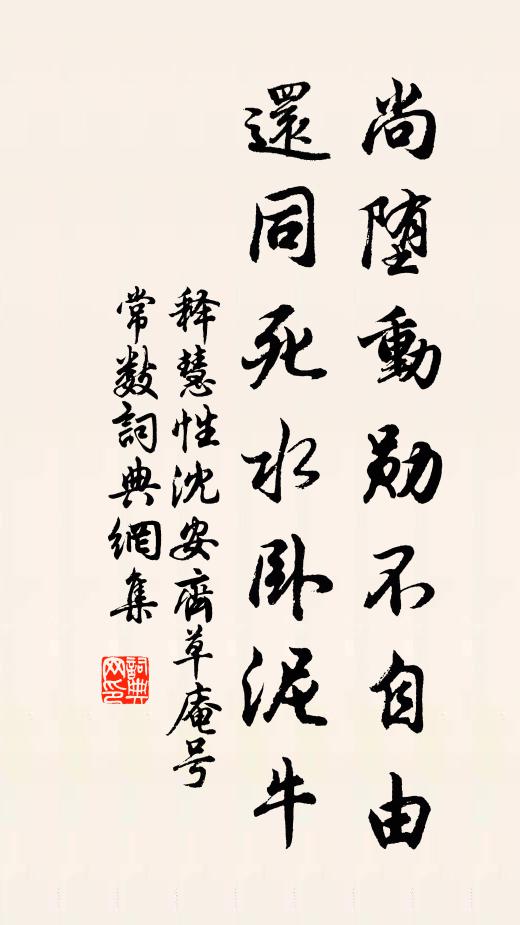 尚堕動勛不自由
還同死水卧泥牛
释慧性沈安齊草庵号
常數詞典網集
詞典网印